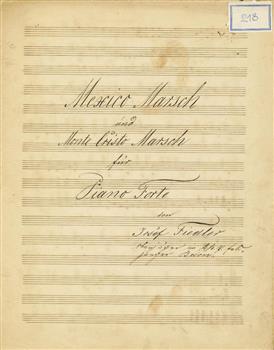 218
Mexico Marsch
und
Monte Cristo Marsch
für
Piano Forte
von
Josef Fiedler